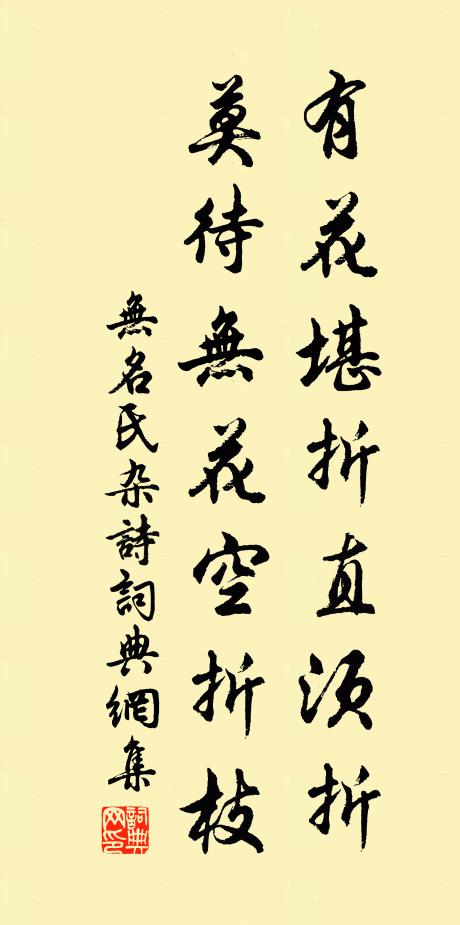 有花堪折直須折
莫待無花空折枝
無名氏杂詩詞典網集
詞典網印